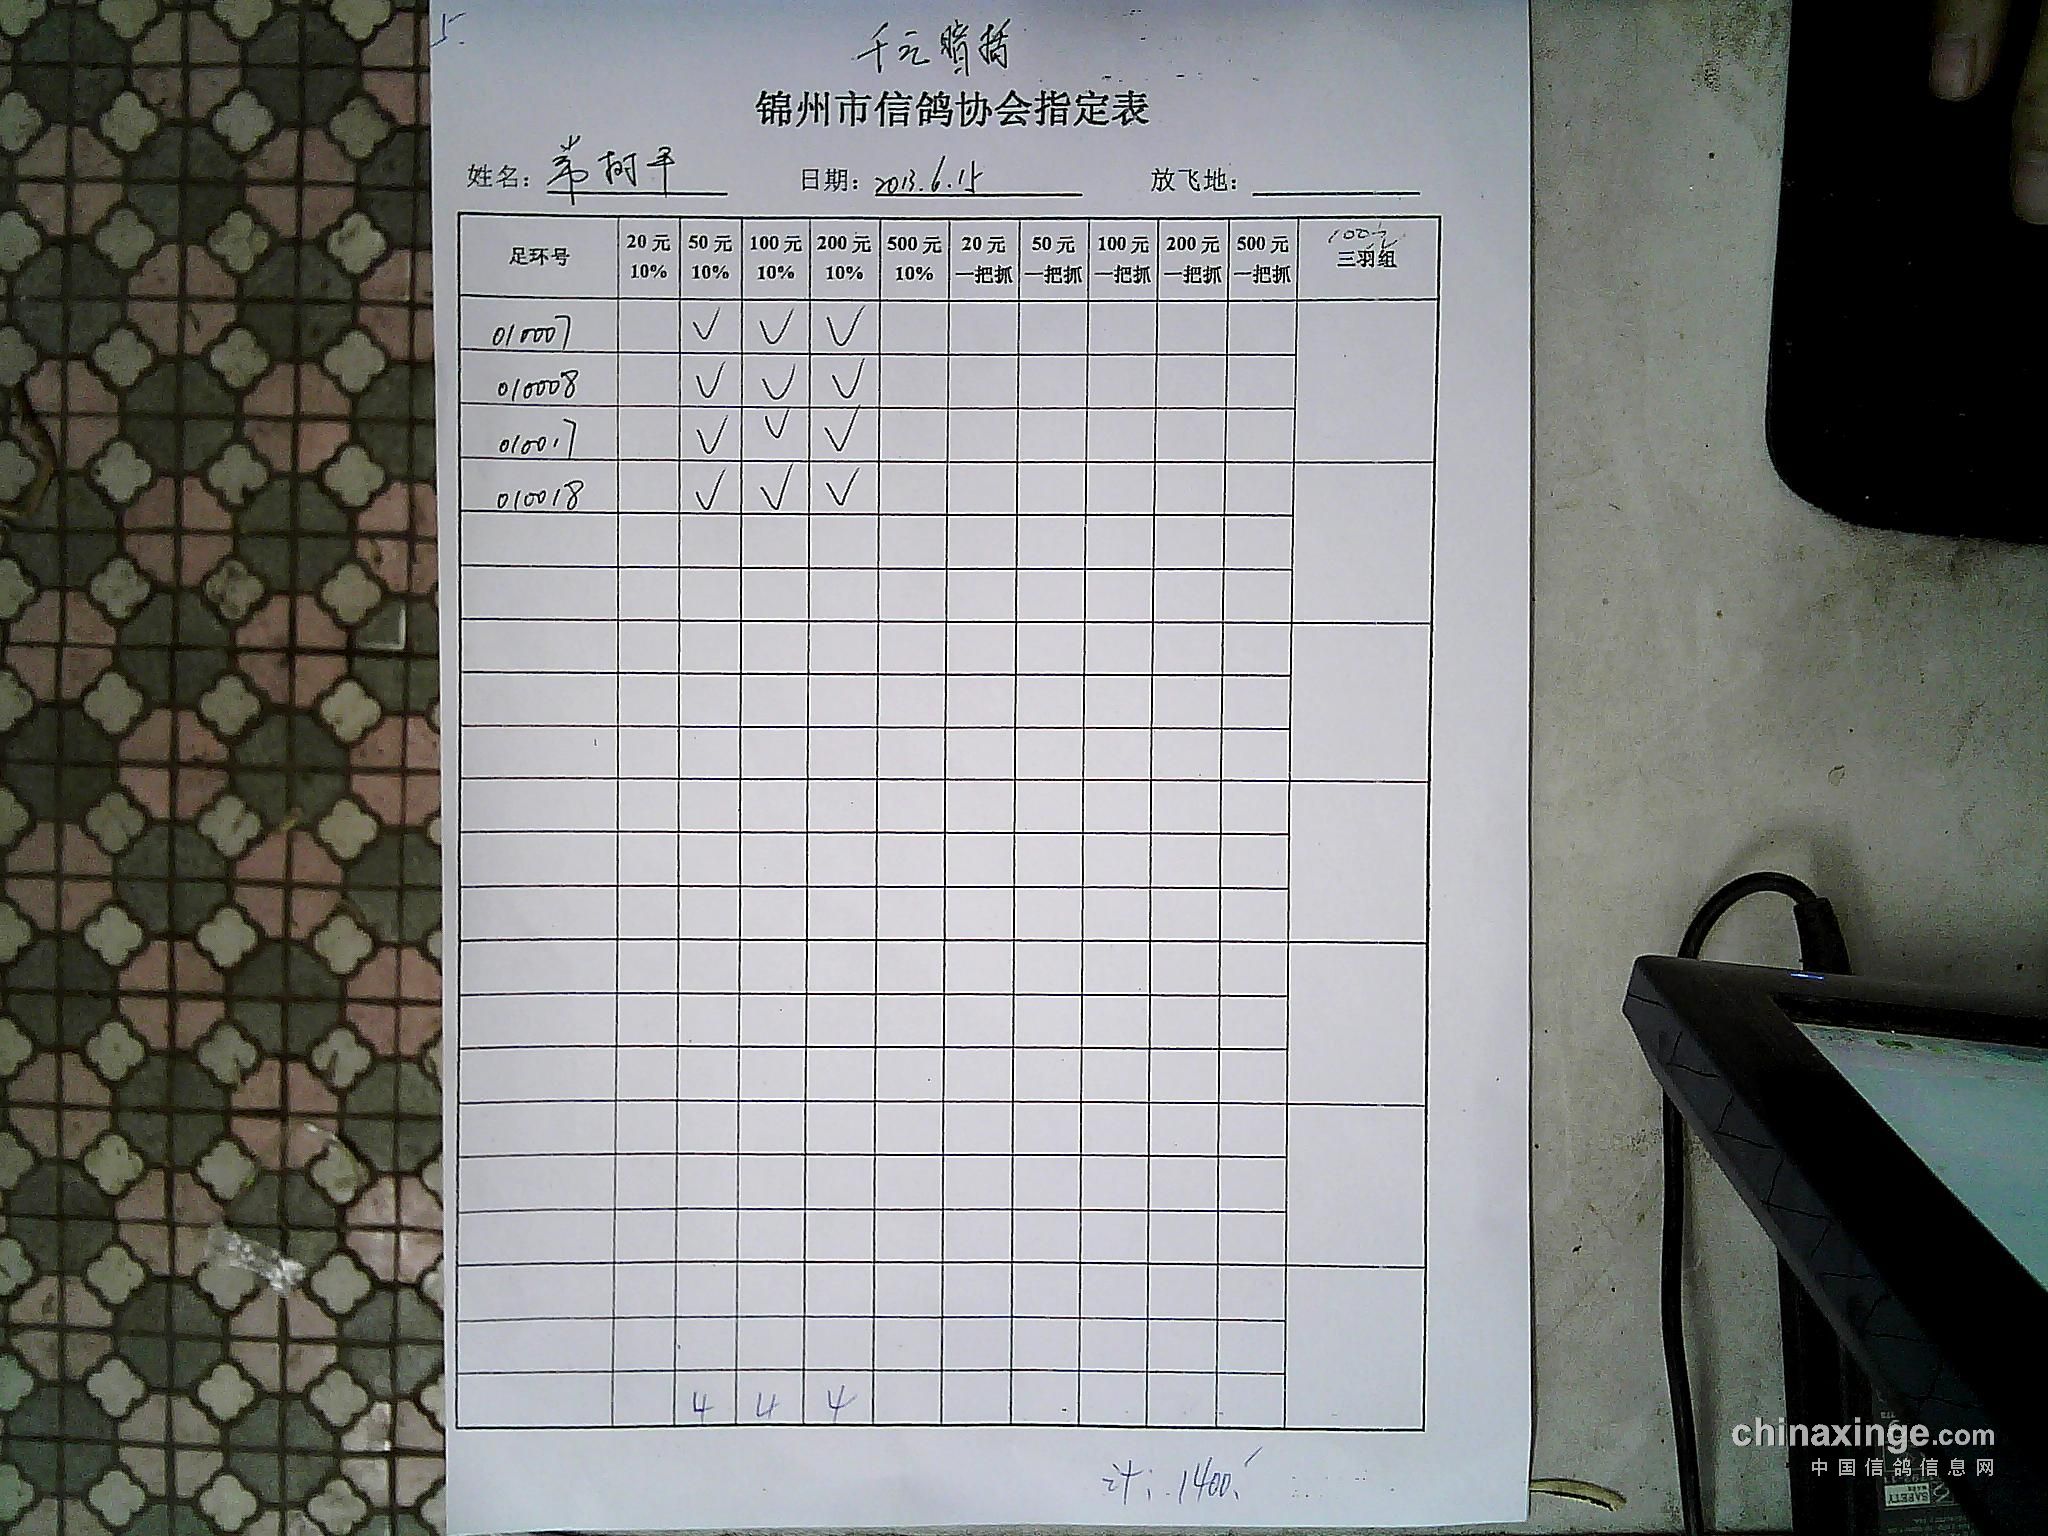 5.
千元
锦州市信鸽协会指定表
姓名： 树平 日期：2013.6.15 放飞地：
足环号 20元 10% 50元 10% 100元 10% 200元 10% 500元 10% 20元 一把抓 50元 一把抓 100元 一把抓 200元 一把抓 500元 一把抓 100元 三羽组
010007 √ √ √
010008 √ √ √
010017 √ √ √
010018 √ √ √
4 4 4
计：1400.
chinaxinge.com
中国信鸽信息网